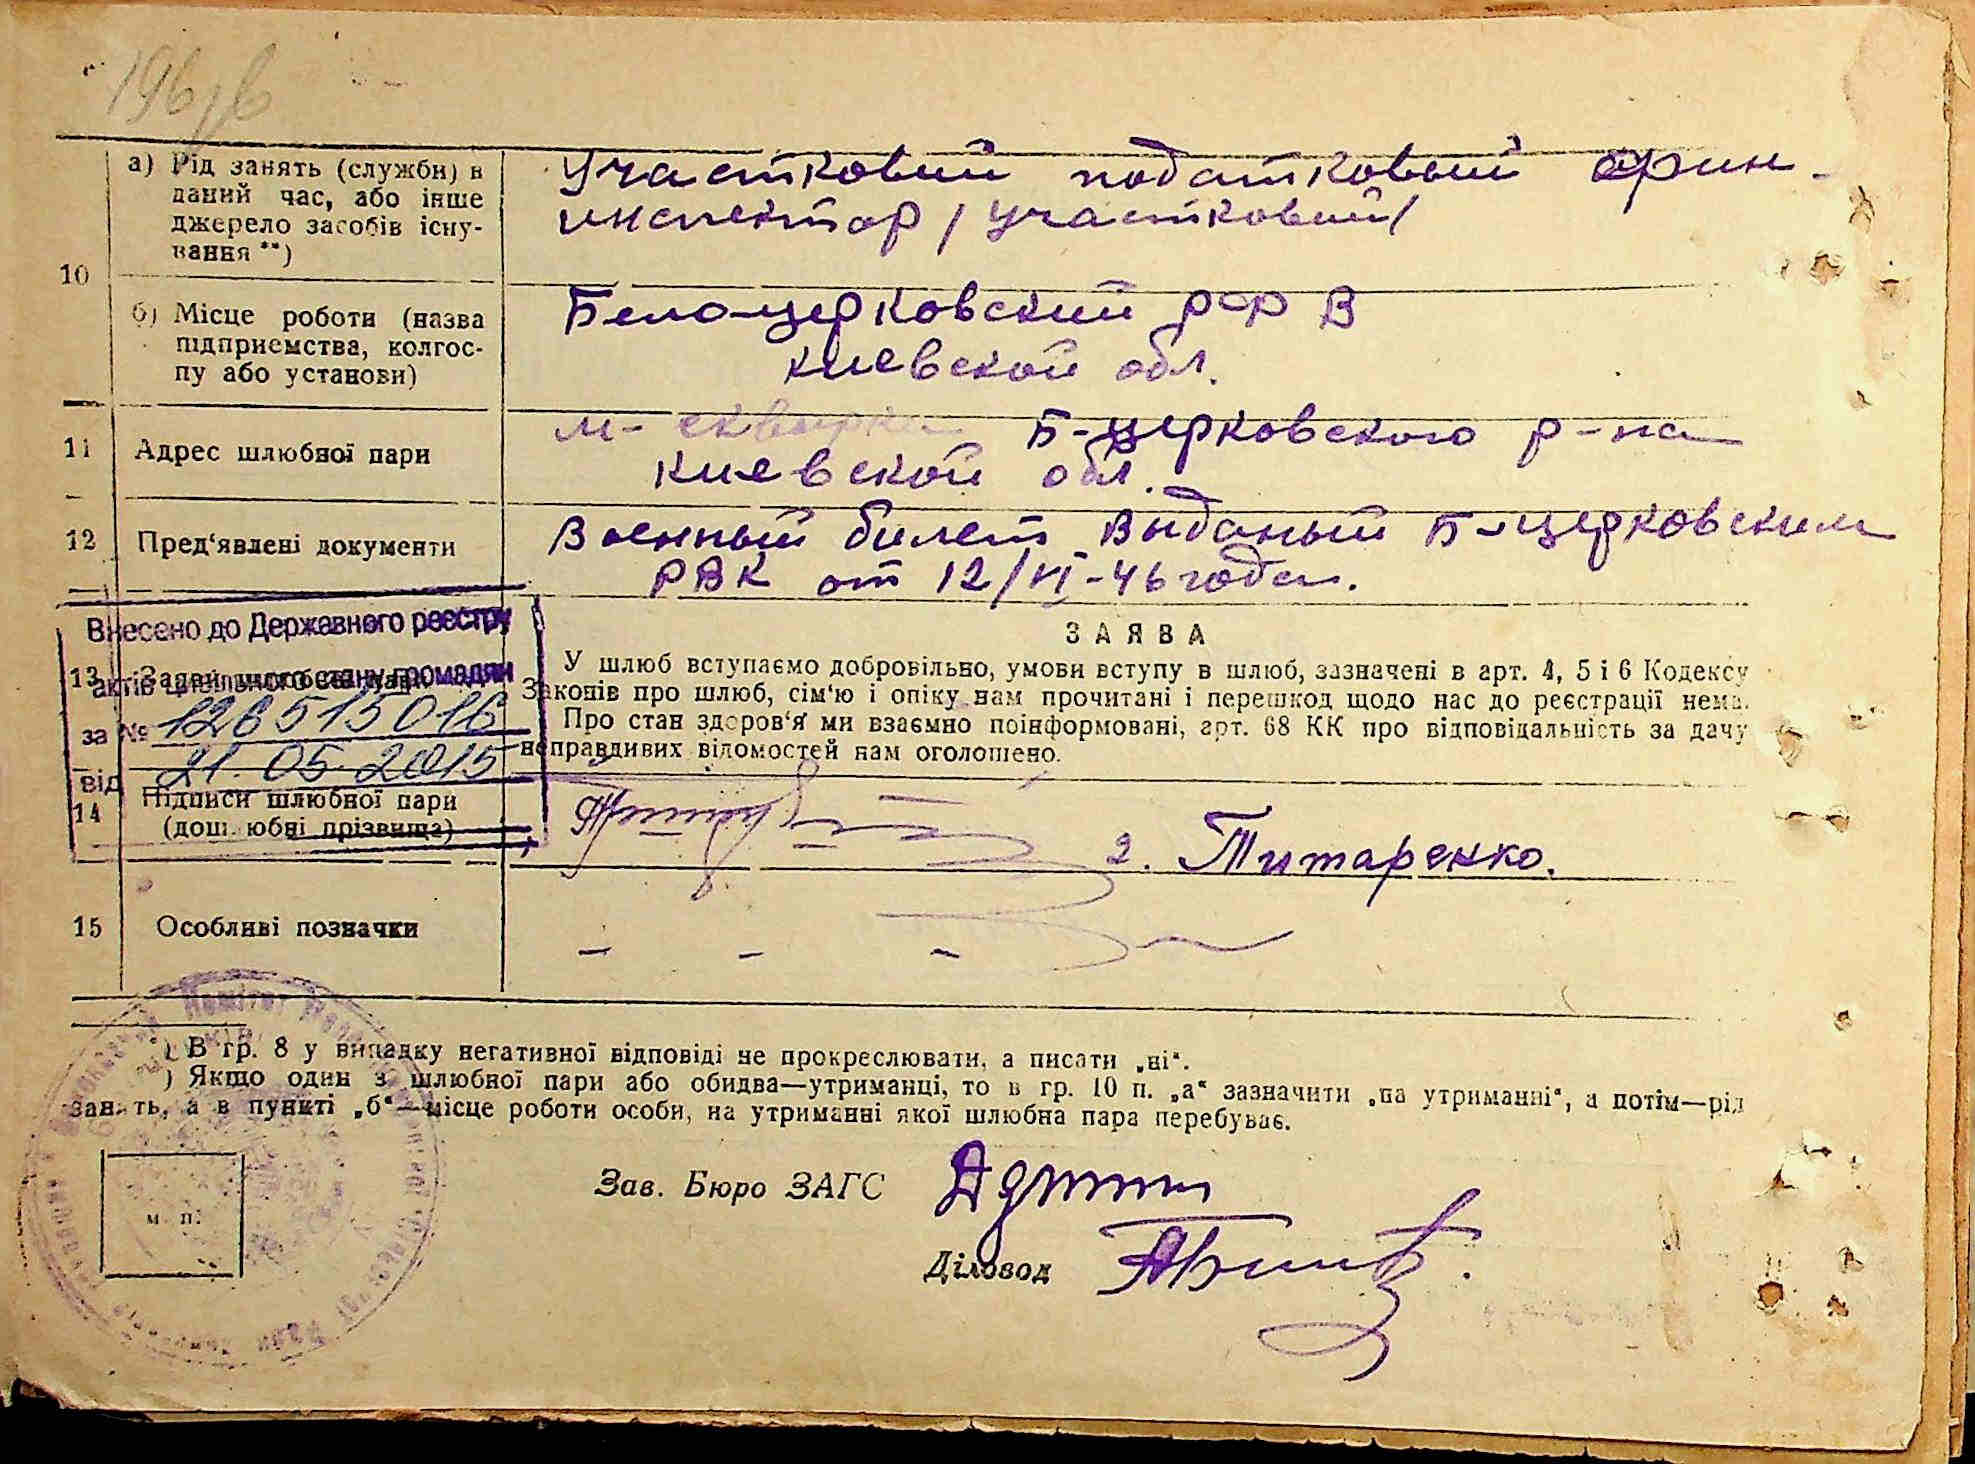 196/в
10
а) Рід занять (служби) в
даний час, або інше
джерело засобів існу-
вання **)
Участковий податковый фин-
инспектор / участковий/
б) Місце роботи (назва
підприємства, колгос-
пу або установи)
Бело-церковский рФВ
Киевской обл.
11
Адрес шлюбної пари
м- сквирка Б-церковского р-на
Киевской обл.
12
Пред'явлені документи
Военный билет выданый Б-церковским
РВК от 12/VI-46 года.
Внесено до Державного реєстру
актів цивільного стану громадян
за № 126515016
від 21.05.2015
13
ЗАЯВА
У шлюб вступаємо добровільно, умови вступу в шлюб, зазначені в арт. 4, 5 і 6 Кодексу
Законів про шлюб, сім'ю і опіку нам прочитані і перешкод щодо нас до реєстрації нема.
Про стан здоров'я ми взаємно поінформовані, арт. 68 КК про відповідальність за дачу
неправдивих відомостей нам оголошено.
14
Підписи шлюбної пари
(дошлюбні прізвища)
2. Титаренко.
15
Особливі позначки
- - -
*) В гр. 8 у випадку негативної відповіді не прокреслювати, а писати „ні“.
) Якщо один з шлюбної пари або обидва—утриманці, то в гр. 10 п. „а“ зазначити „на утриманні“, а потім—рід
занять, а в пункті „б“—місце роботи особи, на утриманні якої шлюбна пара перебуває.
м. п.
Зав. Бюро ЗАГС
Діловод